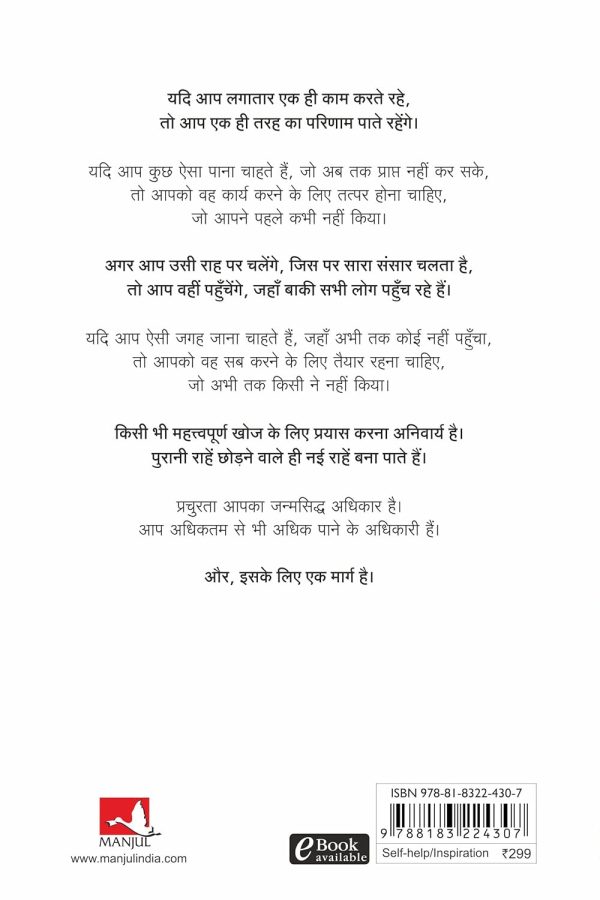 यदि आप लगातार एक ही काम करते रहे,
तो आप एक ही तरह का परिणाम पाते रहेंगे।
यदि आप कुछ ऐसा पाना चाहते हैं, जो अब तक प्राप्त नहीं कर सके,
तो आपको वह कार्य करने के लिए तत्पर होना चाहिए,
जो आपने पहले कभी नहीं किया।
अगर आप उसी राह पर चलेंगे, जिस पर सारा संसार चलता है,
तो आप वहीं पहुँचेंगे, जहाँ बाकी सभी लोग पहुँच रहे हैं।
यदि आप ऐसी जगह जाना चाहते हैं, जहाँ अभी तक कोई नहीं पहुँचा,
तो आपको वह सब करने के लिए तैयार रहना चाहिए,
जो अभी तक किसी ने नहीं किया।
किसी भी महत्त्वपूर्ण खोज के लिए प्रयास करना अनिवार्य है।
पुरानी राहें छोड़ने वाले ही नई राहें बना पाते हैं।
प्रचुरता आपका जन्मसिद्ध अधिकार है।
आप अधिकतम से भी अधिक पाने के अधिकारी हैं।
और, इसके लिए एक मार्ग है।
MANJUL
www.manjulindia.com
eBook
available
ISBN 978-81-8322-430-7
9 788183 224307
Self-help/Inspiration ₹299